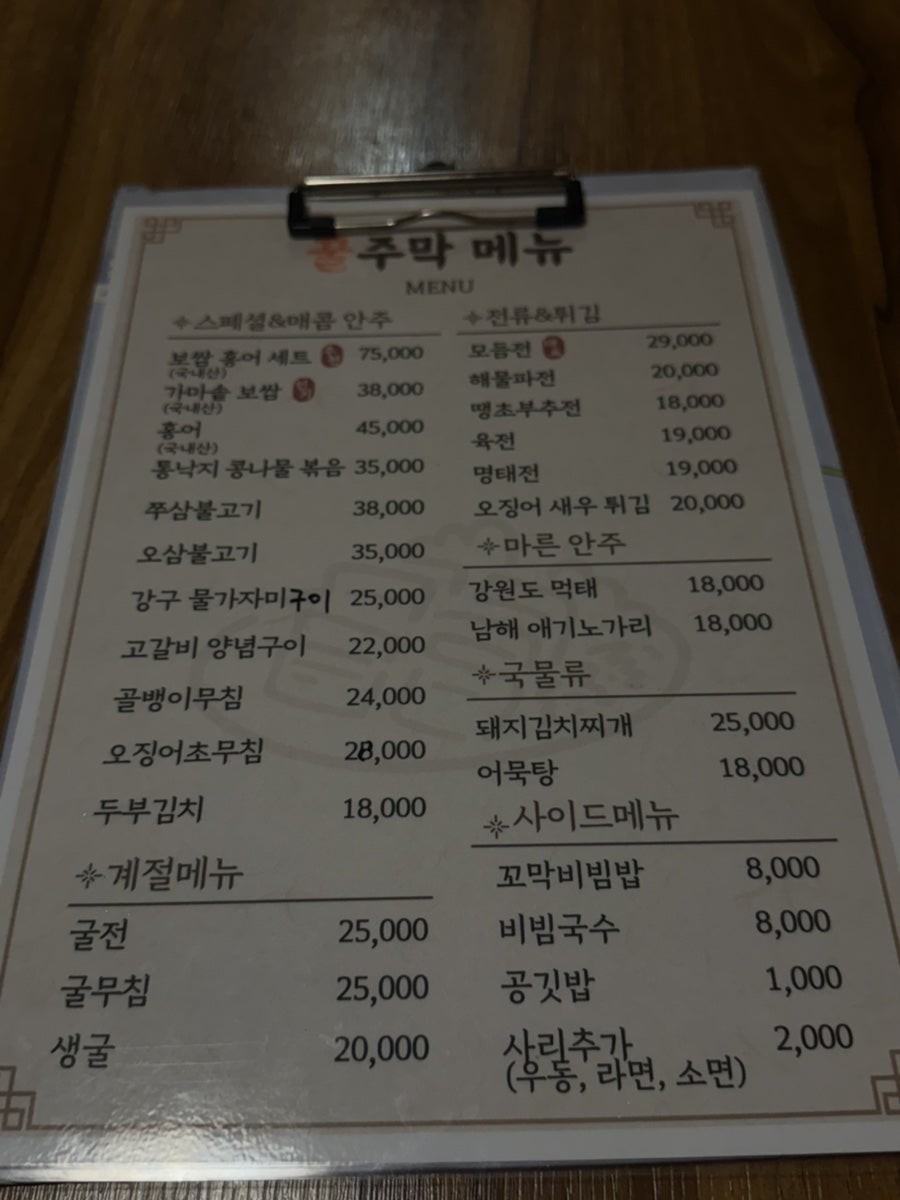 주막 메뉴
MENU
스페셜&매콤 안주
보쌈 홍어 세트 75,000
(국내산)
가마솥 보쌈 38,000
(국내산)
홍어 45,000
(국내산)
통낙지 콩나물 볶음 35,000
쭈삼불고기 38,000
오삼불고기 35,000
강구 물가자미구이 25,000
고갈비 양념구이 22,000
골뱅이무침 24,000
오징어초무침 28,000
두부김치 18,000
계절메뉴
굴전 25,000
굴무침 25,000
생굴 20,000
전류&튀김
모듬전 29,000
해물파전 20,000
땡초부추전 18,000
육전 19,000
명태전 19,000
오징어 새우 튀김 20,000
마른 안주
강원도 먹태 18,000
남해 애기노가리 18,000
국물류
돼지김치찌개 25,000
어묵탕 18,000
사이드메뉴
꼬막비빔밥 8,000
비빔국수 8,000
공깃밥 1,000
사리추가 2,000
(우동, 라면, 소면)